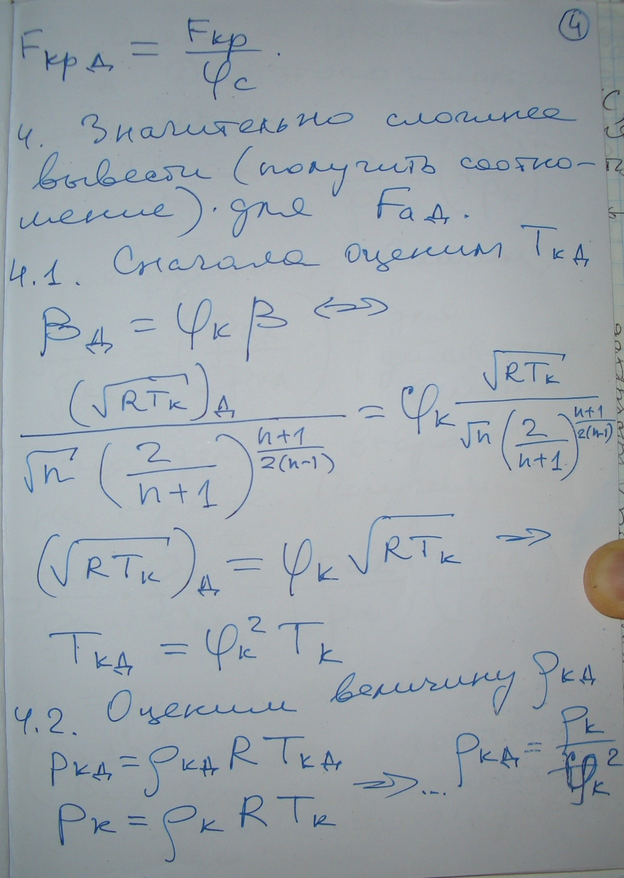 4
F_{кр Д} = \frac{F_{кр}}{φ_c}.
4. Значительно сложнее
вывести (получить соотно-
шение) для F_{аД}.
4.1. Сначала оценим T_{кД}
β_Д = φ_к β <=>
\frac{(\sqrt{RT_к})_Д}{\sqrt{n} (\frac{2}{n+1})^{\frac{n+1}{2(n-1)}}} = φ_к \frac{\sqrt{RT_к}}{\sqrt{n} (\frac{2}{n+1})^{\frac{n+1}{2(n-1)}}}
(\sqrt{RT_к})_Д = φ_к \sqrt{RT_к} =>
T_{кД} = φ_к^2 T_к
4.2. Оценим величину ρ_{кД}
p_{кД} = ρ_{кД} R T_{кД}
p_к = ρ_к R T_к => ... ρ_{кД} = \frac{ρ_к}{φ_к^2}